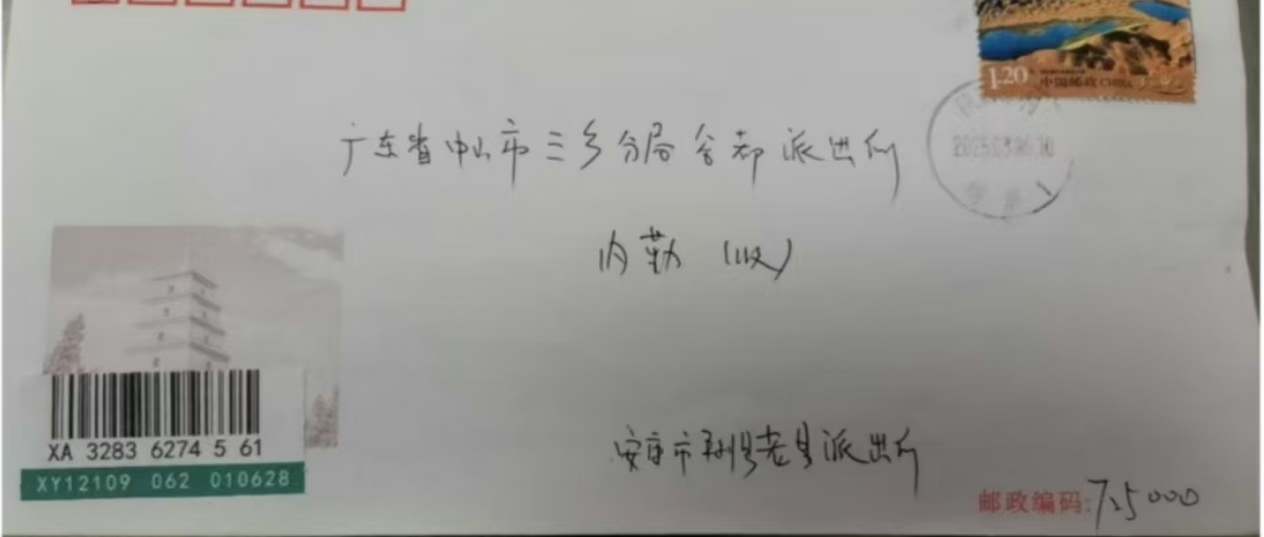 1.20
中国邮政 CHINA
广东省中山市三乡分局谷都派出所
2025.03.26.10
内勤 (收)
XA 3283 6274 5 61
XY12109 062 010628
安康市 派出所
邮政编码: 725000